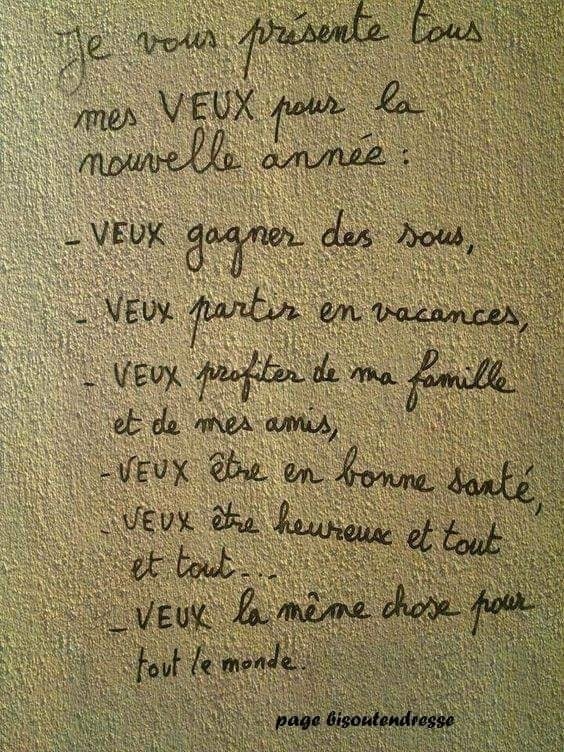 Je vous présente tous
mes VEUX pour la
nouvelle année :
- VEUX gagner des sous,
- VEUX partir en vacances,
- VEUX profiter de ma famille
et de mes amis,
- VEUX être en bonne santé,
- VEUX être heureux et tout
et tout...
- VEUX la même chose pour
tout le monde.
page bisoutendresse